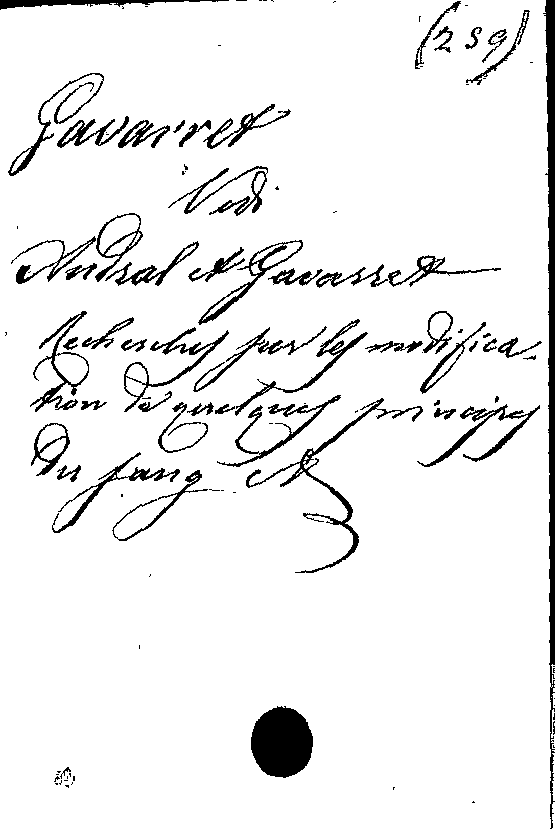 (259)
Gavarret
Vedi
Andral et Gavarret
Recherches sur les modifica-
tion de quelques principes
du sang etc